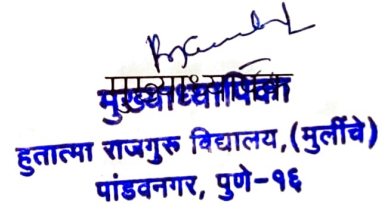 मुख्याध्यापिका
हुतात्मा राजगुरू विद्यालय,(मुलींचे)
पांडवनगर, पुणे-१६